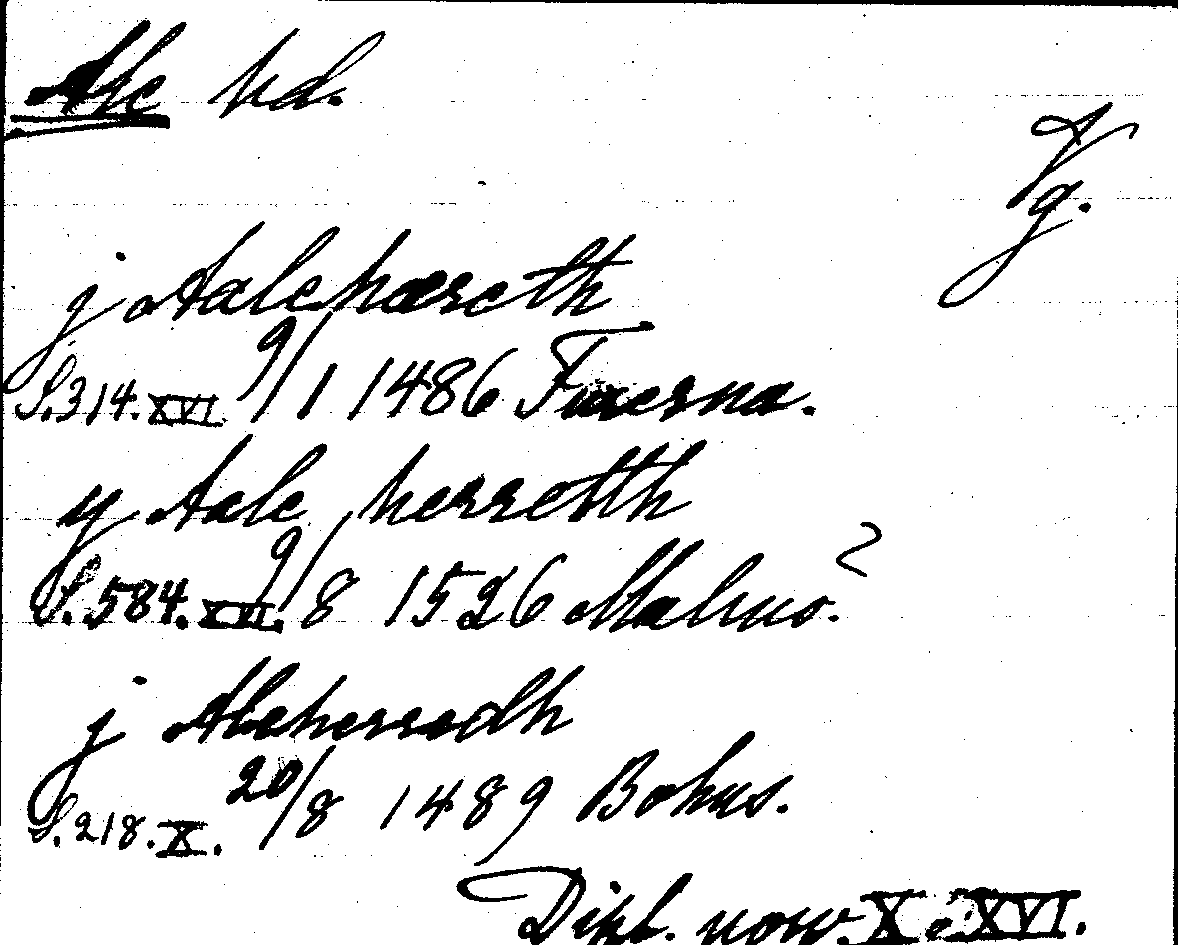 Ale hd.
Vg.
j Aalehæreth
S. 314. XVI. 9/1 1486 Fuxerna.
y Aale herretth
S. 584. XVI. 9/8 1526 Malmö?
j Aleherredh
S. 218. X. 20/8 1489 Bohus.
Dipl. norv. X o. XVI.